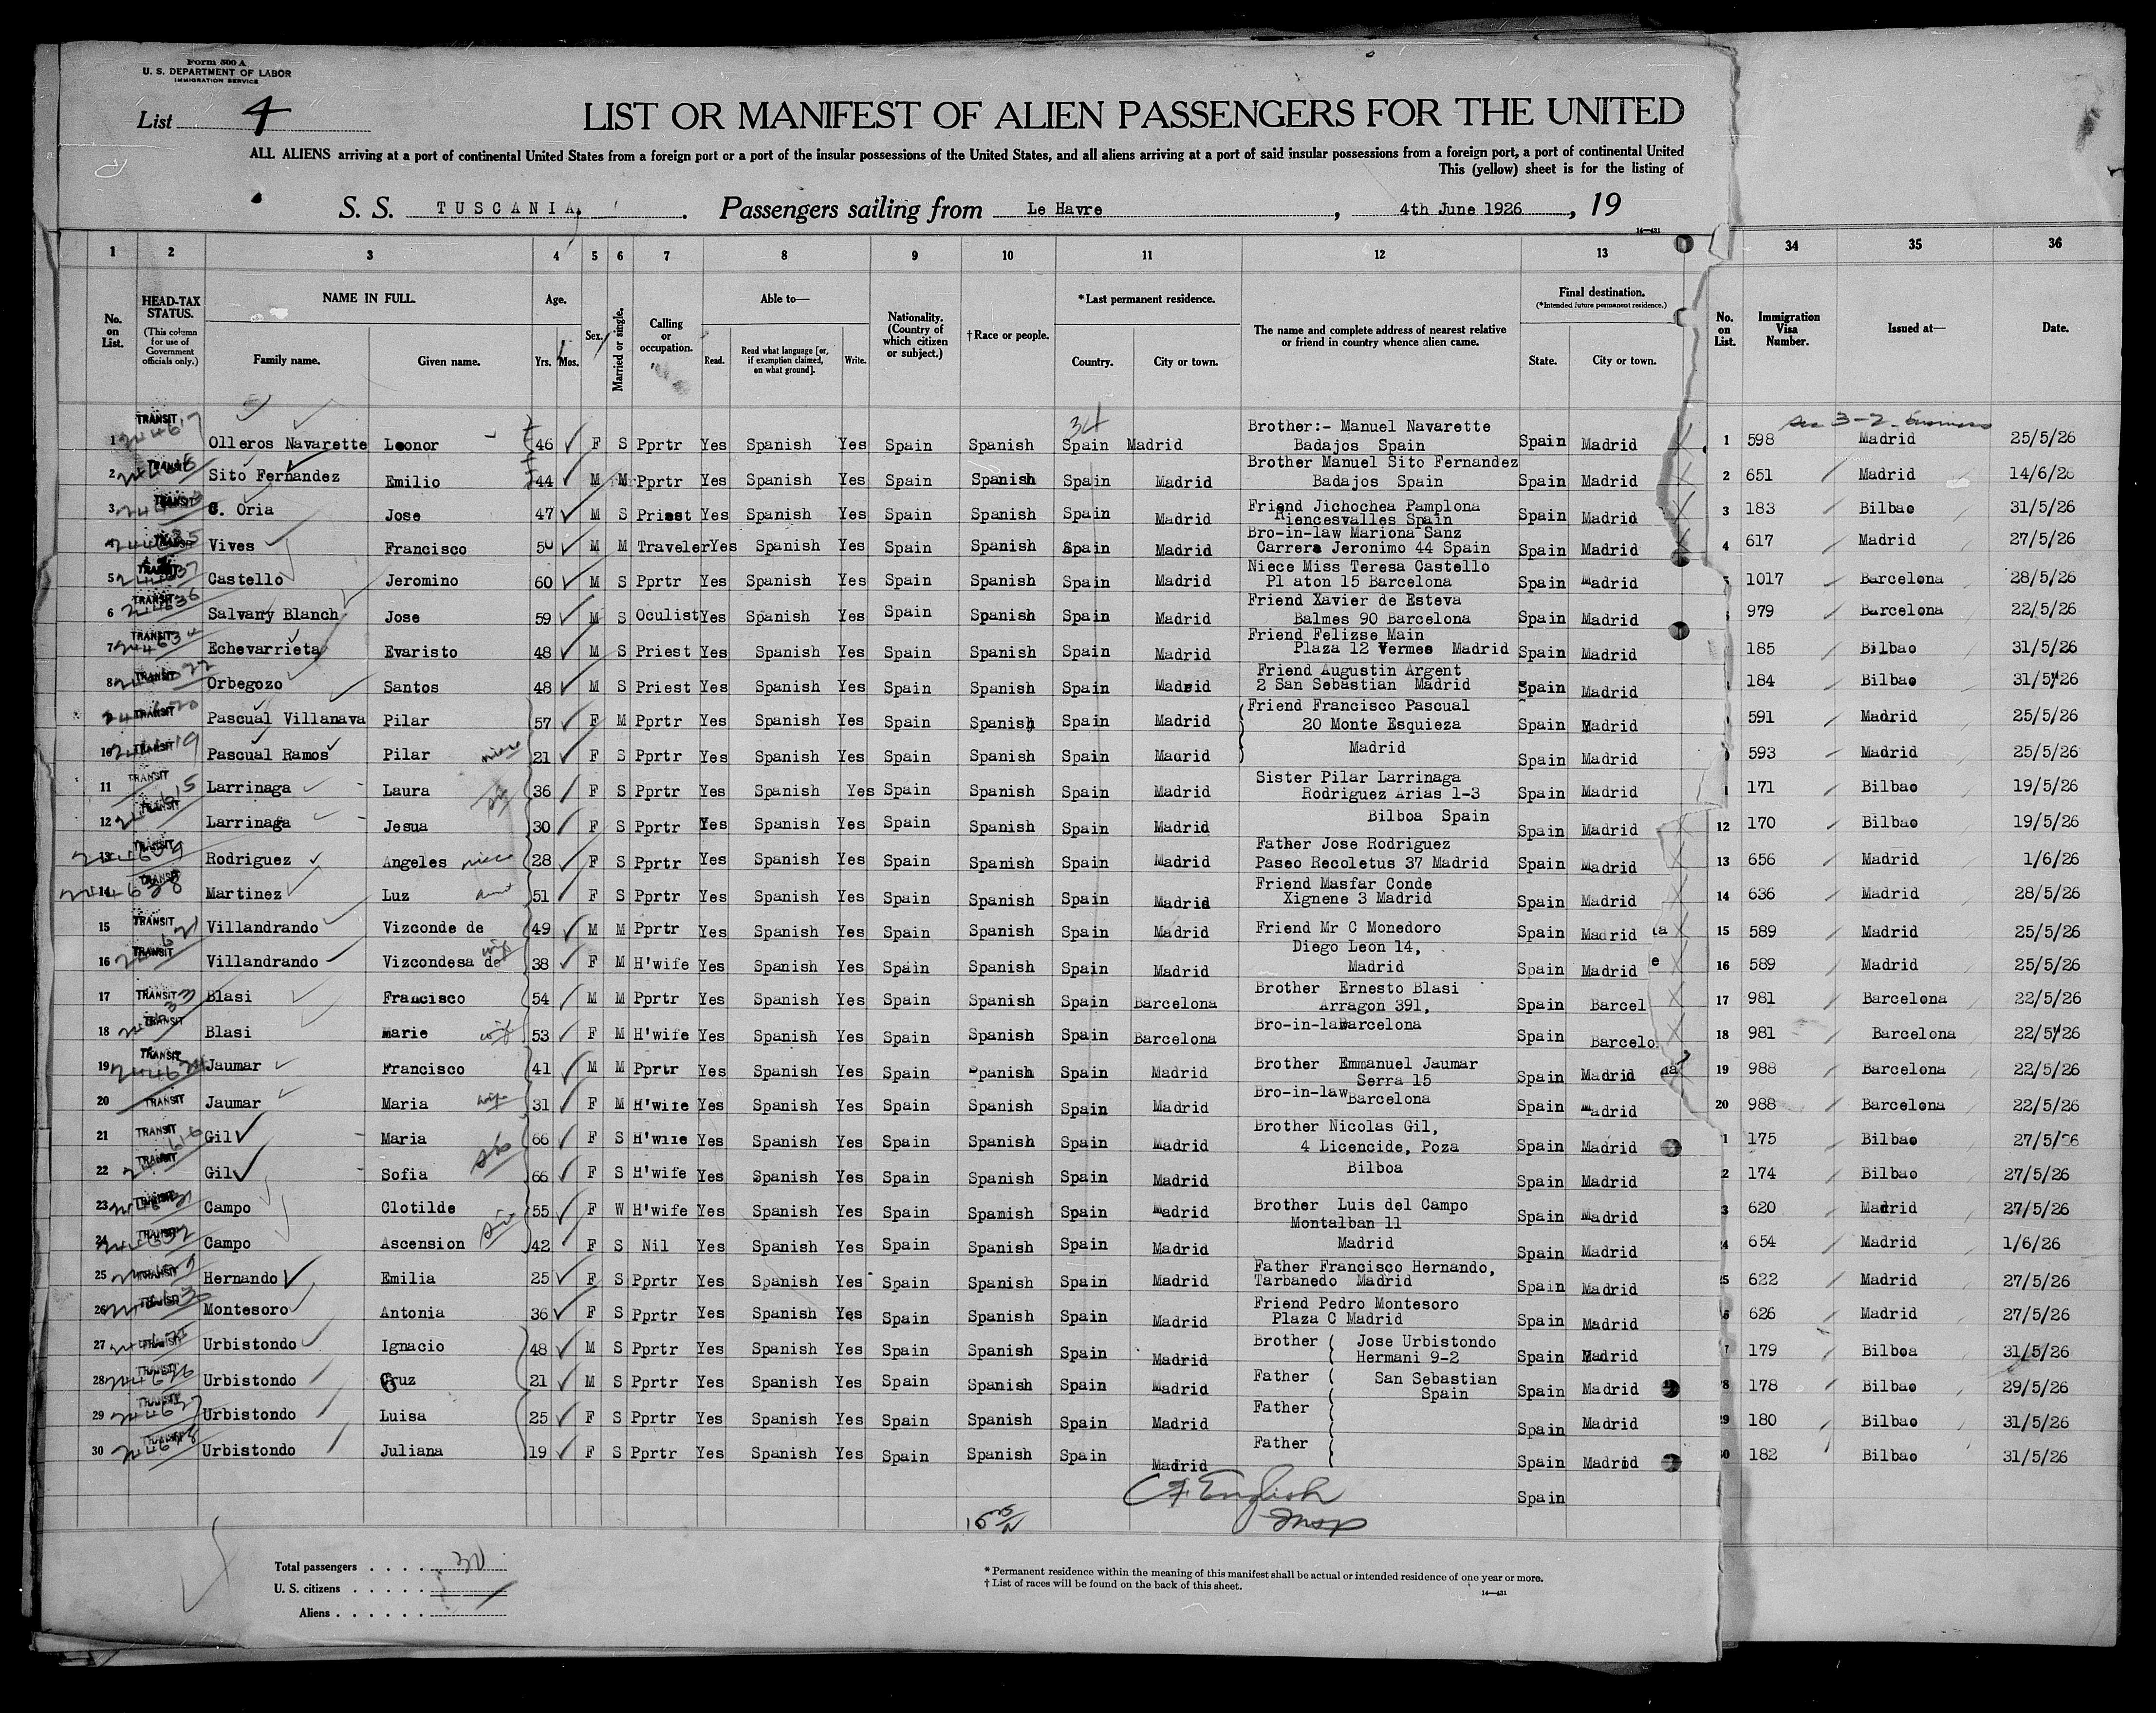 Form 500 A
U. S. DEPARTMENT OF LABOR
IMMIGRATION SERVICE
List 4
LIST OR MANIFEST OF ALIEN PASSENGERS FOR THE UNITED
ALL ALIENS arriving at a port of continental United States from a foreign port or a port of the insular possessions of the United States, and all aliens arriving at a port of said insular possessions from a foreign port, a port of continental United
This (yellow) sheet is for the listing of
S. S. TUSCANIA. Passengers sailing from Le Havre, 4th June 1926, 19
14—431
1 2 3 4 5 6 7 8 9 10 11 12 13 34 35 36
No. on List.
HEAD-TAX STATUS.
(This column for use of Government officials only.)
NAME IN FULL.
Family name. Given name.
Age.
Yrs. Mos.
Sex.
Married or single.
Calling or occupation.
Able to—
Read. Read what language [or, if exemption claimed, on what ground]. Write.
Nationality. (Country of which citizen or subject.)
† Race or people.
* Last permanent residence.
Country. City or town.
The name and complete address of nearest relative or friend in country whence alien came.
Final destination.
(*Intended future permanent residence.)
State. City or town.
No. on List.
Immigration Visa Number.
Issued at—
Date.
34
1 TRANSIT Olleros Navarette Leonor 46 F S Pprtr Yes Spanish Yes Spain Spanish Spain Madrid Brother:- Manuel Navarette Badajos Spain Spain Madrid 1 598 Madrid 25/5/26
2 TRANSIT Sito Fernandez Emilio 44 M M Pprtr Yes Spanish Yes Spain Spanish Spain Madrid Brother Manuel Sito Fernandez Badajos Spain Spain Madrid 2 651 Madrid 14/6/26
3 TRANSIT Oria Jose 47 M S Priest Yes Spanish Yes Spain Spanish Spain Madrid Friend Jichochea Pamplona Riencesvalles Spain Spain Madrid 3 183 Bilbao 31/5/26
4 TRANSIT Vives Francisco 50 M M Traveler Yes Spanish Yes Spain Spanish Spain Madrid Bro-in-law Mariona Sanz Carrera Jeronimo 44 Spain Spain Madrid 4 617 Madrid 27/5/26
5 TRANSIT Castello Jeromino 60 M S Pprtr Yes Spanish Yes Spain Spanish Spain Madrid Niece Miss Teresa Castello Pl aton 15 Barcelona Spain Madrid 5 1017 Barcelona 28/5/26
6 TRANSIT Salvany Blanch Jose 59 M S Oculist Yes Spanish Yes Spain Spanish Spain Madrid Friend Xavier de Esteva Balmes 90 Barcelona Spain Madrid 979 Barcelona 22/5/26
7 TRANSIT Echevarrieta Evaristo 48 M S Priest Yes Spanish Yes Spain Spanish Spain Madrid Friend Felizse Main Plaza 12 Vermee Madrid Spain Madrid 185 Bilbao 31/5/26
8 TRANSIT Orbegozo Santos 48 M S Priest Yes Spanish Yes Spain Spanish Spain Madrid Friend Augustin Argent 2 San Sebastian Madrid Spain Madrid 184 Bilbao 31/5/26
TRANSIT Pascual Villanava Pilar 57 F M Pprtr Yes Spanish Yes Spain Spanish Spain Madrid Friend Francisco Pascual 20 Monte Esquieza Spain Madrid 591 Madrid 25/5/26
10 TRANSIT Pascual Ramos Pilar niece 21 F S Pprtr Yes Spanish Yes Spain Spanish Spain Madrid Madrid Spain Madrid 593 Madrid 25/5/26
11 TRANSIT Larrinaga Laura 36 F S Pprtr Yes Spanish Yes Spain Spanish Spain Madrid Sister Pilar Larrinaga Rodriguez Arias 1-3 Spain Madrid 171 Bilbao 19/5/26
12 TRANSIT Larrinaga Jesua 30 F S Pprtr Yes Spanish Yes Spain Spanish Spain Madrid Bilboa Spain Spain Madrid 12 170 Bilbao 19/5/26
13 TRANSIT Rodriguez Angeles niece 28 F S Pprtr Yes Spanish Yes Spain Spanish Spain Madrid Father Jose Rodriguez Paseo Recoletus 37 Madrid Spain Madrid 13 656 Madrid 1/6/26
14 TRANSIT Martinez Luz aunt 51 F S Pprtr Yes Spanish Yes Spain Spanish Spain Madrid Friend Masfar Conde Xignene 3 Madrid Spain Madrid 14 636 Madrid 28/5/26
15 TRANSIT Villandrando Vizconde de 49 M M Pprtr Yes Spanish Yes Spain Spanish Spain Madrid Friend Mr C Monedoro Spain Madrid 15 589 Madrid 25/5/26
16 TRANSIT Villandrando Vizcondesa de wife 38 F M H'wife Yes Spanish Yes Spain Spanish Spain Madrid Diego Leon 14, Madrid Spain Madrid 16 589 Madrid 25/5/26
17 TRANSIT Blasi Francisco 54 M M Pprtr Yes Spanish Yes Spain Spanish Spain Barcelona Brother Ernesto Blasi Arragon 391, Spain Barcel 17 981 Barcelona 22/5/26
18 TRANSIT Blasi marie wife 53 F M H'wife Yes Spanish Yes Spain Spanish Spain Barcelona Bro-in-law Barcelona Spain Barcelo 18 981 Barcelona 22/5/26
19 TRANSIT Jaumar Francisco 41 M M Pprtr Yes Spanish Yes Spain Spanish Spain Madrid Brother Emmanuel Jaumar Serra 15 Spain Madrid 19 988 Barcelona 22/5/26
20 TRANSIT Jaumar Maria wife 31 F M H'wife Yes Spanish Yes Spain Spanish Spain Madrid Bro-in-law Barcelona Spain Madrid 20 988 Barcelona 22/5/26
21 TRANSIT Gil Maria 66 F S H'wife Yes Spanish Yes Spain Spanish Spain Madrid Brother Nicolas Gil, 4 Licencide, Poza Spain Madrid 1 175 Bilbao 27/5/26
22 TRANSIT Gil Sofia 66 F S H'wife Yes Spanish Yes Spain Spanish Spain Madrid Bilboa Spain Madrid 2 174 Bilbao 27/5/26
23 TRANSIT Campo Clotilde 55 F W H'wife Yes Spanish Yes Spain Spanish Spain Madrid Brother Luis del Campo Montalban 11 Spain Madrid 3 620 Madrid 27/5/26
24 TRANSIT Campo Ascension 42 F S Nil Yes Spanish Yes Spain Spanish Spain Madrid Madrid Spain Madrid 24 654 Madrid 1/6/26
25 TRANSIT Hernando Emilia 25 F S Pprtr Yes Spanish Yes Spain Spanish Spain Madrid Father Francisco Hernando, Tarbanedo Madrid Spain Madrid 25 622 Madrid 27/5/26
26 Montesoro Antonia 36 F S Pprtr Yes Spanish Yes Spain Spanish Spain Madrid Friend Pedro Montesoro Plaza C Madrid Spain Madrid 626 Madrid 27/5/26
27 TRANSIT Urbistondo Ignacio 48 M S Pprtr Yes Spanish Yes Spain Spanish Spain Madrid Brother Jose Urbistondo Hermani 9-2 Spain Madrid 179 Bilboa 31/5/26
28 TRANSIT Urbistondo Cruz 21 M S Pprtr Yes Spanish Yes Spain Spanish Spain Madrid Father San Sebastian Spain Spain Madrid 178 Bilbao 29/5/26
29 TRANSIT Urbistondo Luisa 25 F S Pprtr Yes Spanish Yes Spain Spanish Spain Madrid Father Spain Madrid 29 180 Bilbao 31/5/26
30 Urbistondo Juliana 19 F S Pprtr Yes Spanish Yes Spain Spanish Spain Madrid Father Spain Madrid 182 Bilbao 31/5/26
Spain
English
Insp
Total passengers 30
U. S. citizens
Aliens
* Permanent residence within the meaning of this manifest shall be actual or intended residence of one year or more.
† List of races will be found on the back of this sheet.
14—431